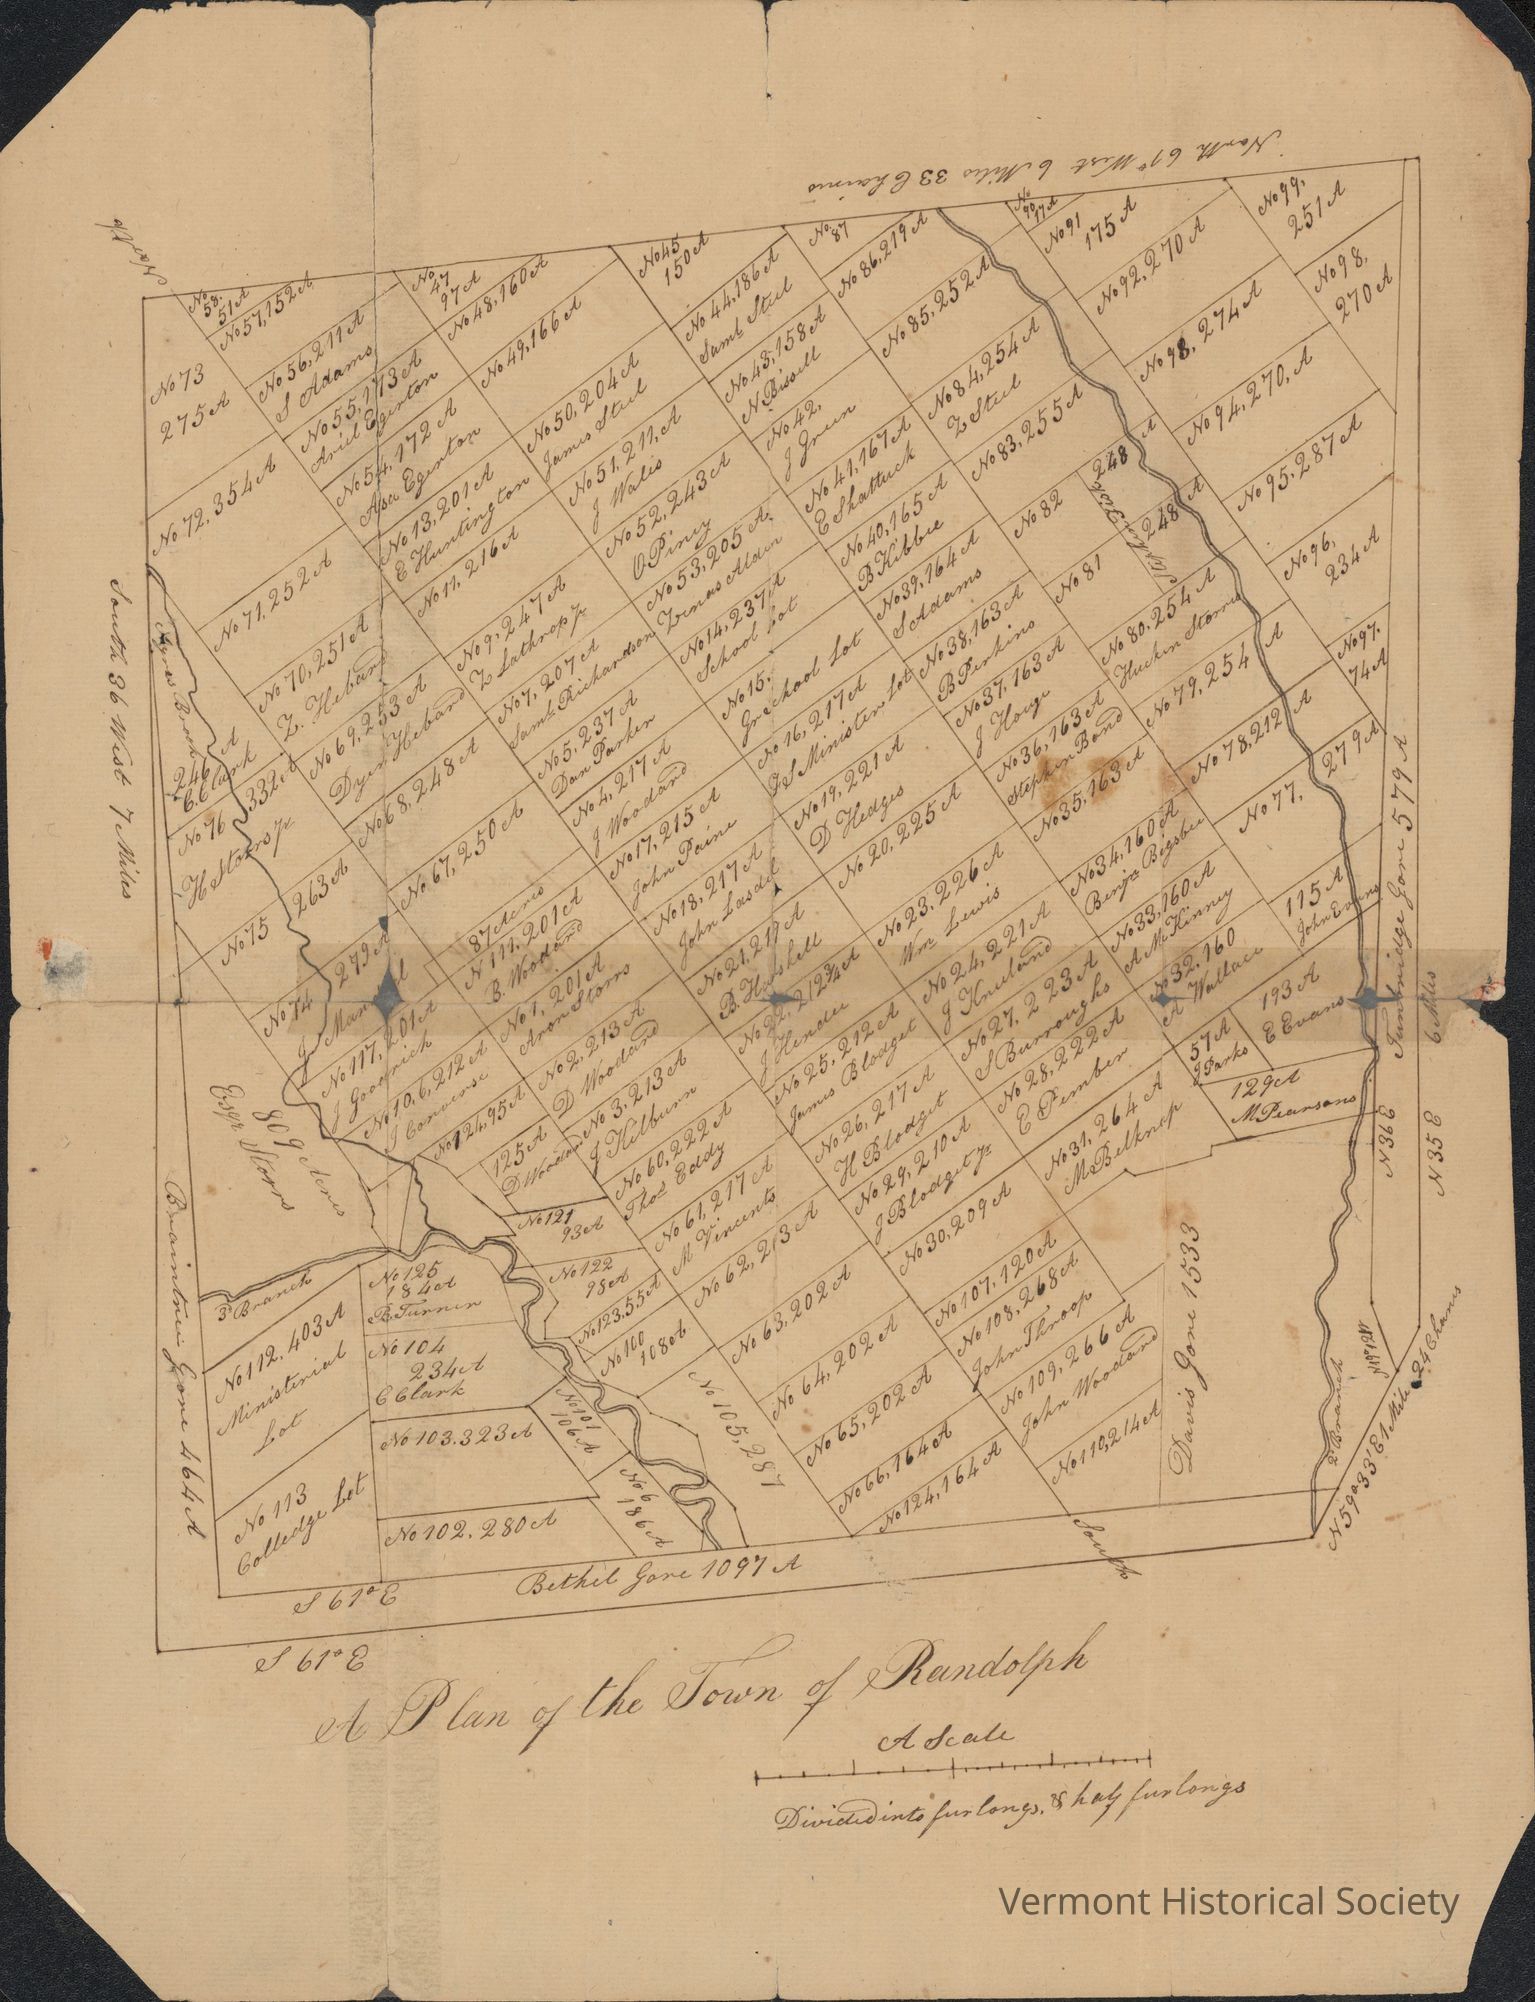 North 61° West 6 Miles 33 Chains
North
No 58.
51 A
No 57, 152 A
No 56, 211 A
S Adams
No 55, 173 A
Ariel Egerton
No 54, 172 A
Asa Egerton
No 13, 201 A
E Huntington
No 11, 216 A
No 9, 247 A
Z Lathrop Jr
No 7, 207 A
Saml Richardson
No 5, 237 A
Dan Parker
No 4, 217 A
J Woodard
No 17, 215 A
John Paine
No 18, 217 A
John Lasdel
No 21, 219 A
B. Hershell
No 22, 212 3/4 A
J Hender
No 25, 212 A
James Blodget
No 26, 217 A
H Blodget
No 29, 210 A
J Blodget Jr
No 30, 209 A
No 47
97 A
No 48, 160 A
No 49, 166 A
No 50, 204 A
James Steel
No 51, 211, A
J Walis
No 52, 243 A
O Piney
No 53, 205 A
Zenas Alden
No 14, 237 A
School Lot
No 15,
Gr School Lot
No 16, 217 A
G S Minister Lot
No 19, 221 A
D Hedges
No 20, 225 A
No 23, 226 A
Wm Lewis
No 24, 221 A
J Kneeland
No 27, 223 A
S Burroughs
No 28, 222 A
E Pember
No 31, 264 A
M Belknap
No 45
150 A
No 44, 186 A
Saml Steel
No 43, 158 A
N Bissell
No 42,
J Green
No 41, 167 A
E Shattuck
No 40, 165 A
B Kibbee
No 39, 164 A
S Adams
No 38, 163 A
B Perkins
No 37, 163 A
J Houge
No 36, 163 A
Stephen Bond
No 35, 163 A
No 34, 160 A
Benja Bigsbee
No 33, 160 A
A McKinney
No 32, 160
A Wallace
57 A
J Parks
193 A
E Evans
129 A
M Pearsons
115 A
John Evans
No 87
No 86, 219 A
No 85, 252 A
No 84, 254 A
Z Steel
No 83, 255 A
No 82
248 A
No 81
248 A
Stephen Fisk
No 80, 254 A
Hucken Storrs
No 79, 254 A
No 78, 212 A
No 77,
279 A
No 90
17 A
No 91
175 A
No 92, 270 A
No 98, 274 A
No 94, 270, A
No 95, 287 A
No 96,
234 A
No 97.
74 A
No 99,
251 A
No 98,
270 A
No 73
275 A
No 72, 354 A
No 71, 252 A
No 70, 251 A
Z. Heband
No 69, 253 A
Dyer Heband
No 68, 248 A
No 67, 250 A
Ayres Brook
246 A
C. Clark
No 76 332 A
H Storrs Jr
No 75 263 A
No 74 279 A
87 Acres
N 111, 201 A
B. Woodard
No 1, 201 A
Aron Storrs
No 2, 213 A
D Woodard
No 3, 213 A
J Kilburn
No 60, 222 A
Thos Eddy
No 61, 217 A
M Vincents
No 62, 213 A
No 63, 202 A
No 64, 202 A
No 65, 202 A
No 66, 164 A
No 124, 164 A
No 117, 201 A
J Goodrich
No 106, 212 A
J Converse
No 124, 95 A
125 A
D Woodard
No 121
93 A
No 122
98 A
No 123, 55 A
No 100
108 A
No 105, 287
No 107, 120 A
No 108, 268 A
John Throop
No 109, 266 A
John Woodard
No 110, 214 A
Davis Gore 1533
Esqr Storrs
809 Acres
3d Branch
No 125
184 A
B Turner
No 104
234 A
C Clark
No 103. 323 A
No 102, 280 A
No 101
106 A
No 6
186 A
No 112, 403 A
Ministerial
Lot
No 113
Colledge Lot
South 36 West 7 Miles
Braintree Gore 464 A
Bethel Gore 1097 A
Tunbridge Gore 579 A
6 Miles
N 36 E
N 35 E
2d Branch
N 59° 33' E 1 Mile 24 Chains
South
S 61° E
S 61° E
A Plan of the Town of Randolph
A Scale
Divided into furlongs, & half furlongs
Vermont Historical Society